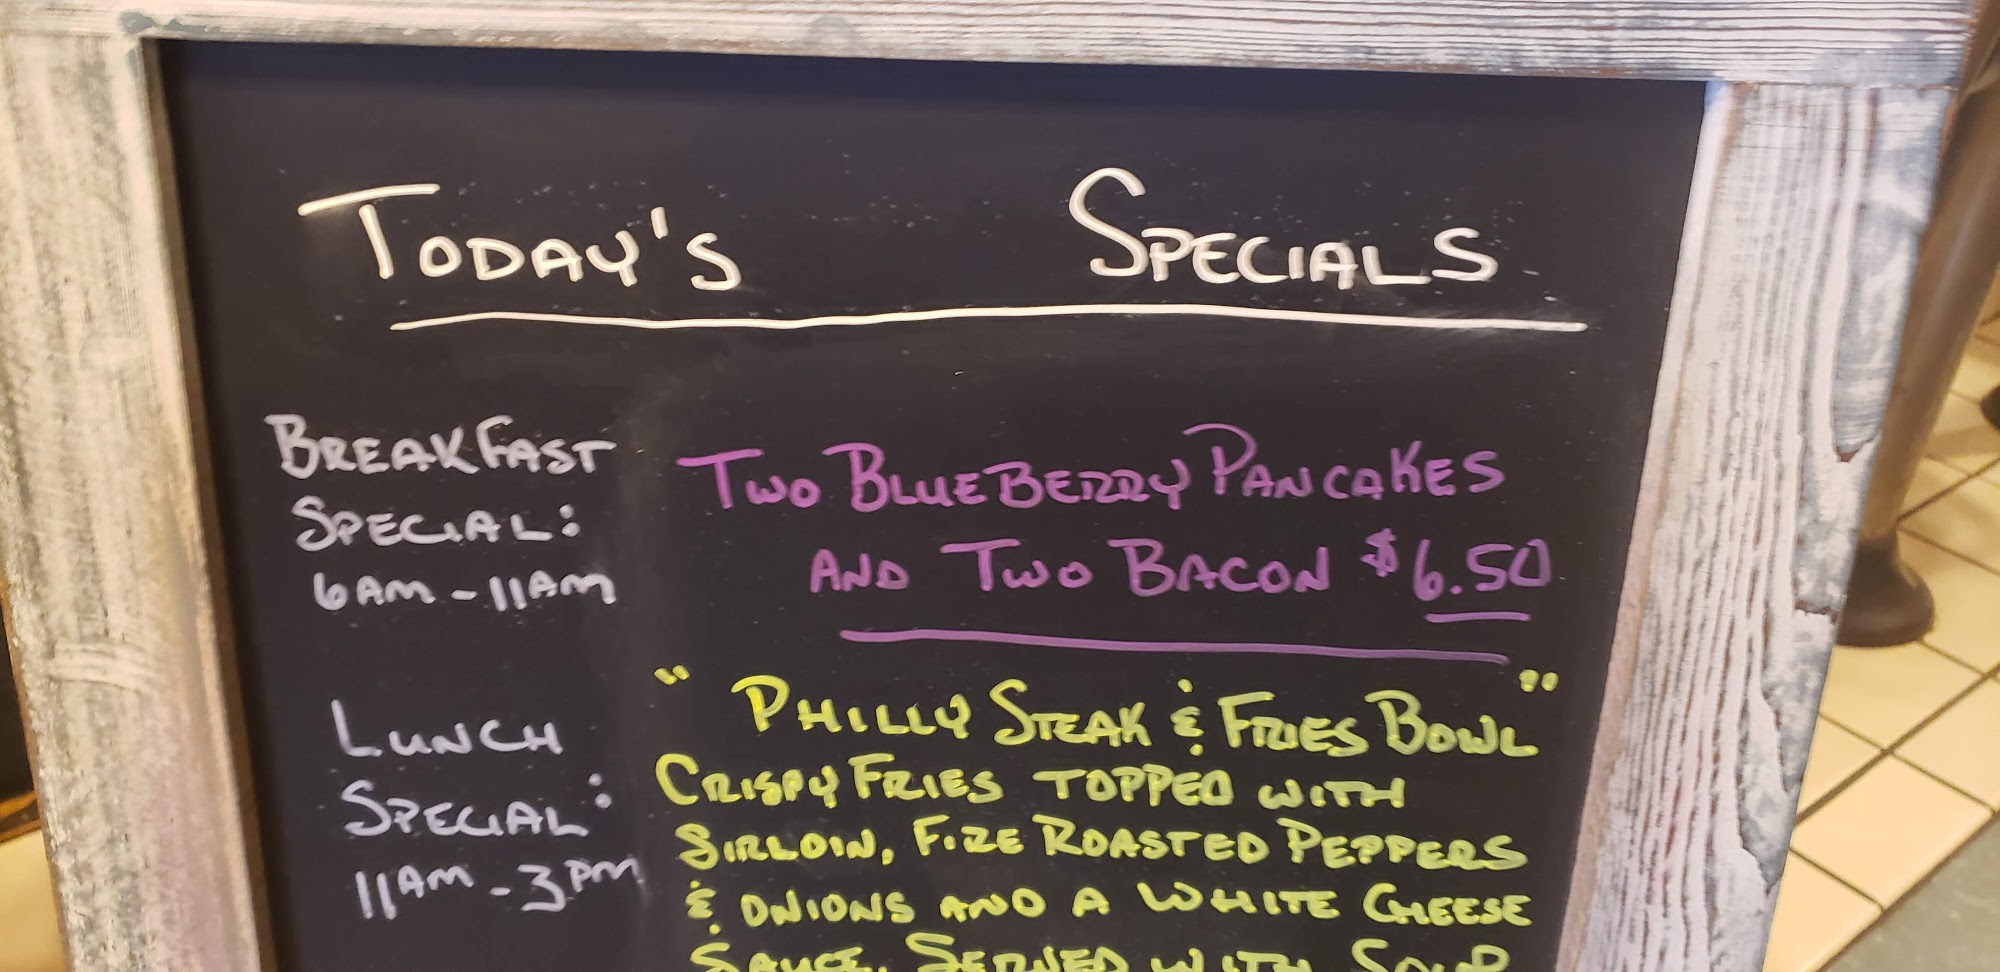 TODAY'S SPECIALS
BREAKFAST
SPECIAL:
6AM - 11AM
TWO BLUEBERRY PANCAKES
AND TWO BACON $6.50
LUNCH
SPECIAL:
11AM - 3PM
"PHILLY STEAK & FRIES BOWL"
CRISPY FRIES TOPPED WITH
SIRLOIN, FIRE ROASTED PEPPERS
& ONIONS AND A WHITE CHEESE
SAUCE. SERVED WITH SOUP